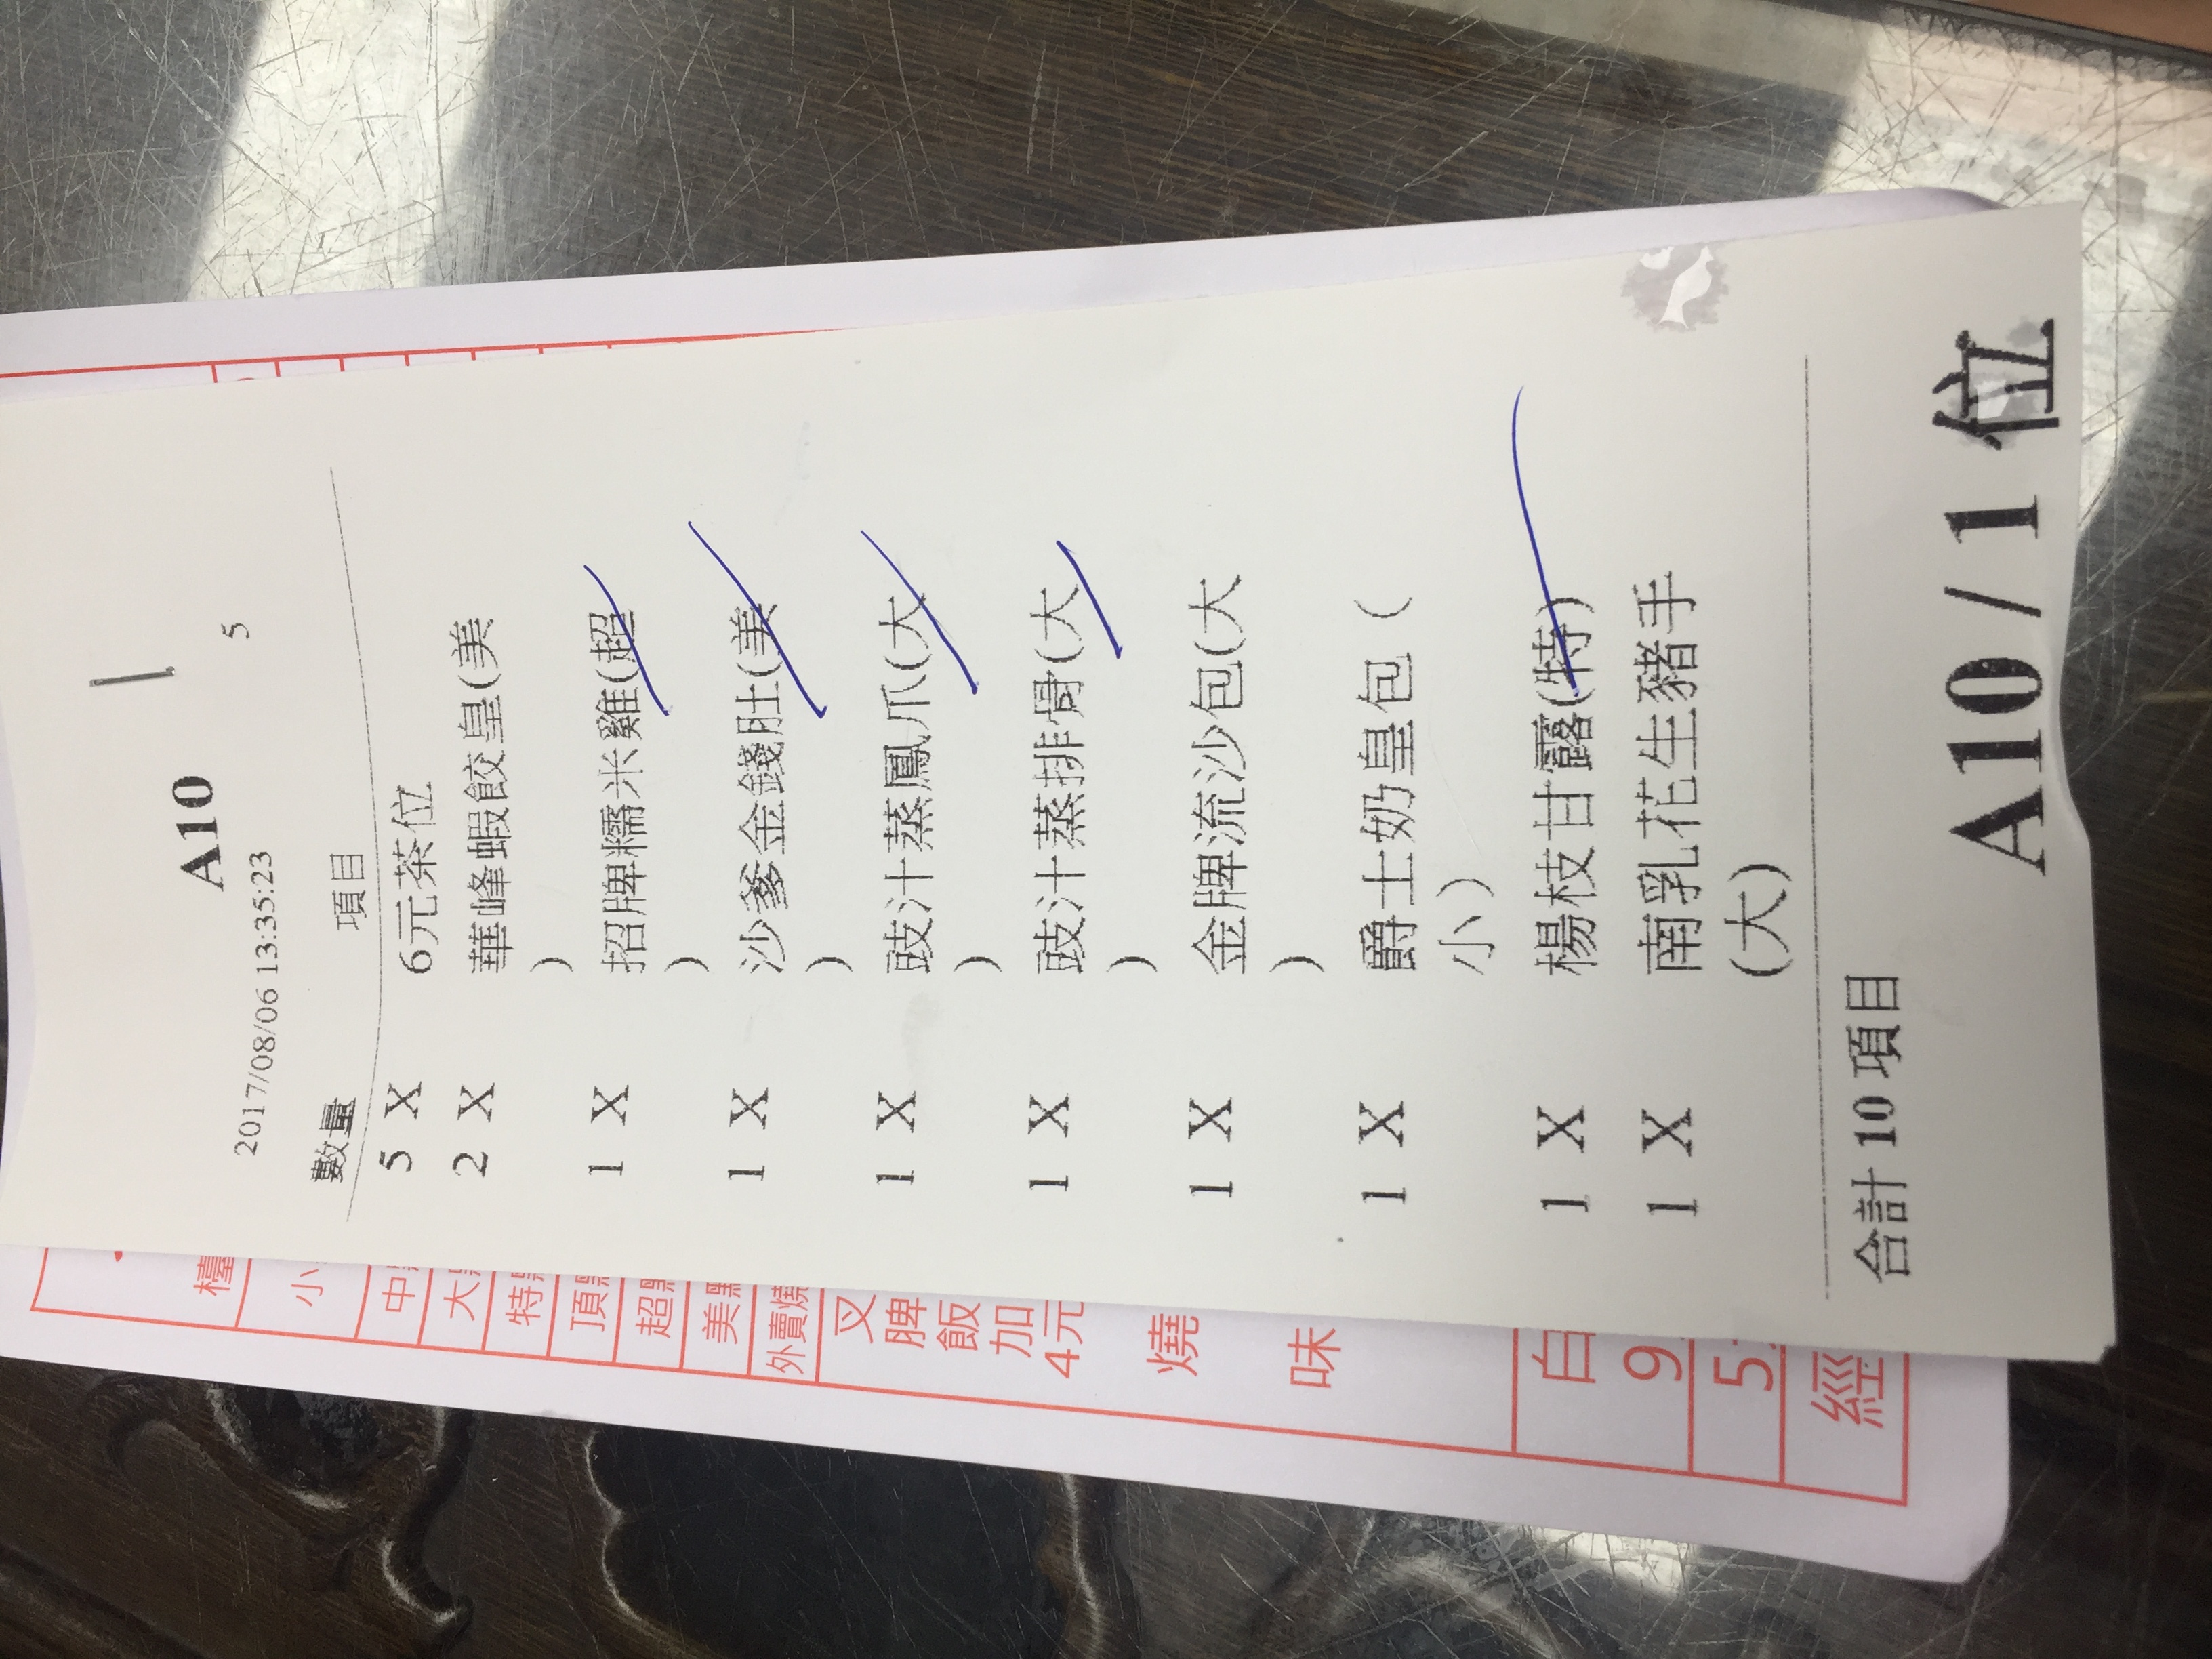 A10
2017/08/06 13:35:23 5
數量 項目
5 X 6元茶位
2 X 華峰蝦餃皇(美
)
1 X 招牌糯米雞(超
)
1 X 沙爹金錢肚(美
)
1 X 豉汁蒸鳳爪(大
)
1 X 豉汁蒸排骨(大
)
1 X 金牌流沙包(大
)
1 X 爵士奶皇包（
小）
1 X 楊枝甘露(特)
1 X 南乳花生豬手
(大)
合計 10 項目
A10 / 1 位
檯
小
中
大
特
頂
超
美
外賣燒
叉
脾
飯
加
4元
燒
味
白
9
5
經